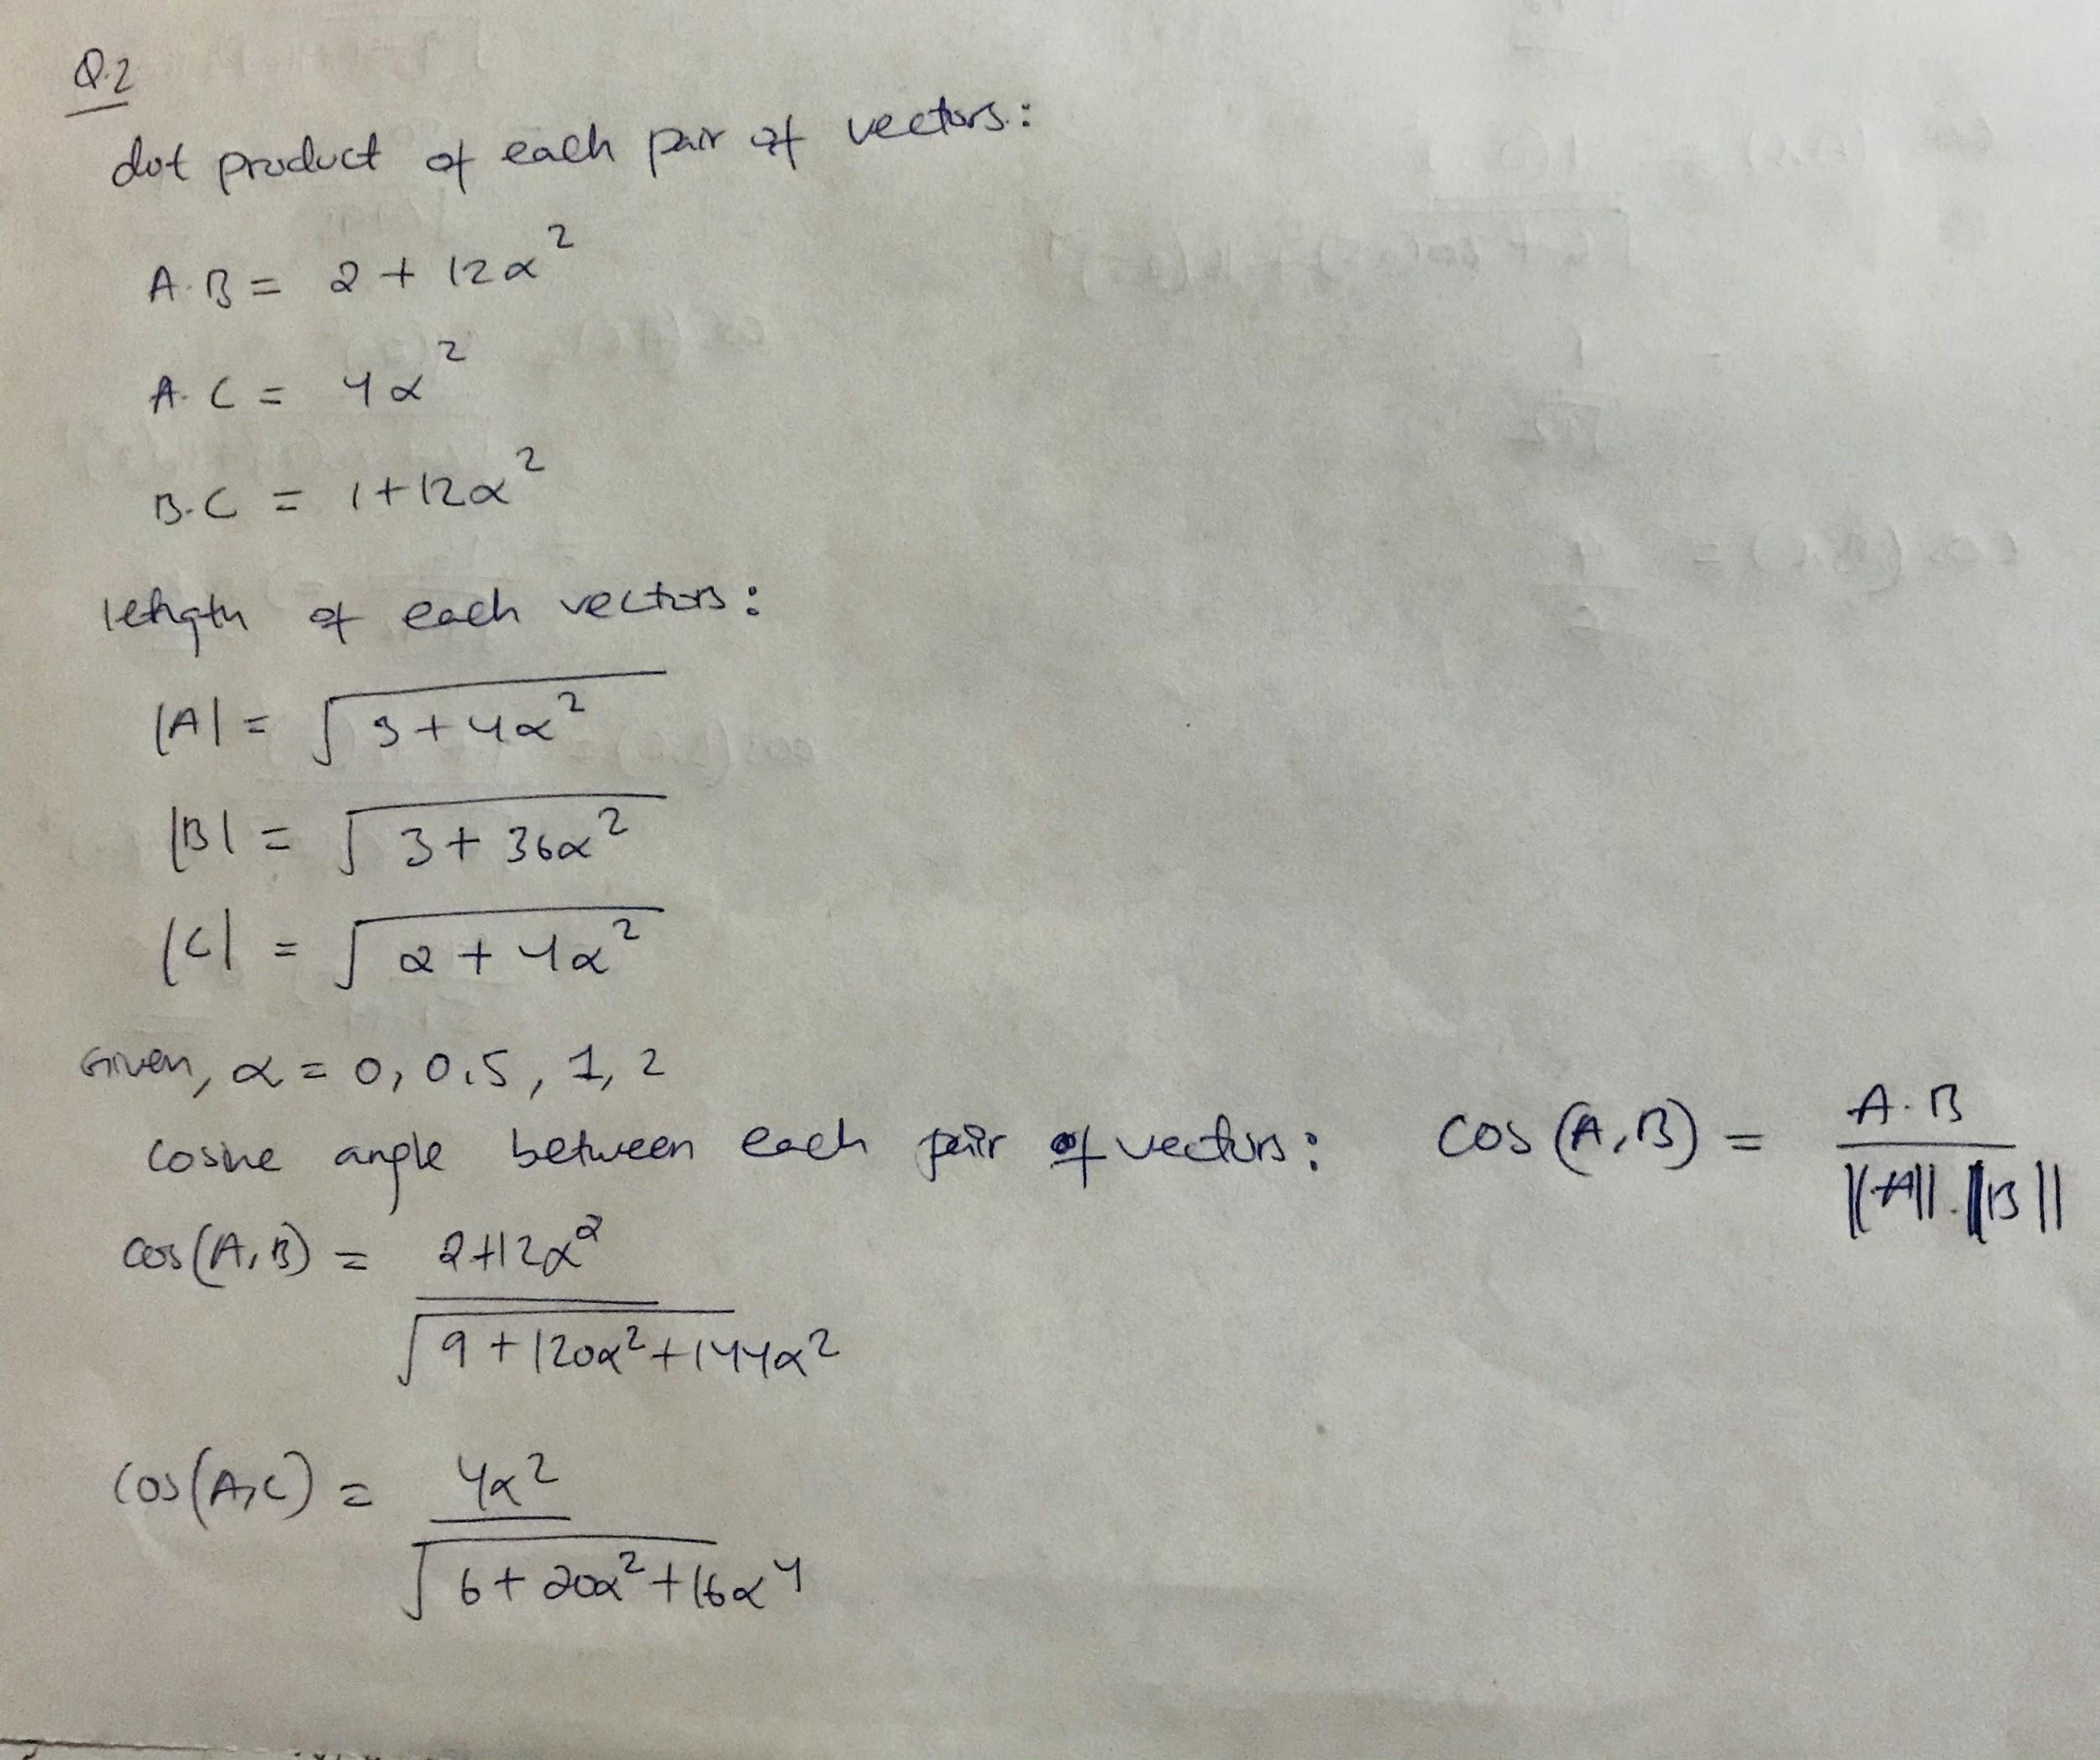 Q.2
dot product of each pair of vectors:
A.B = 2 + 12α²
A.C = 4α²
B.C = 1+12α²
length of each vectors:
|A| = √3+4α²
|B| = √3+36α²
|C| = √2+4α²
Given, α = 0, 0.5, 1, 2
Cosine angle between each pair of vectors: cos(A,B) = A.B / ||A||.||B||
cos(A,B) = 2+12α² / √9+120α²+144α²
cos(A,C) = 4α² / √6+20α²+16α⁴